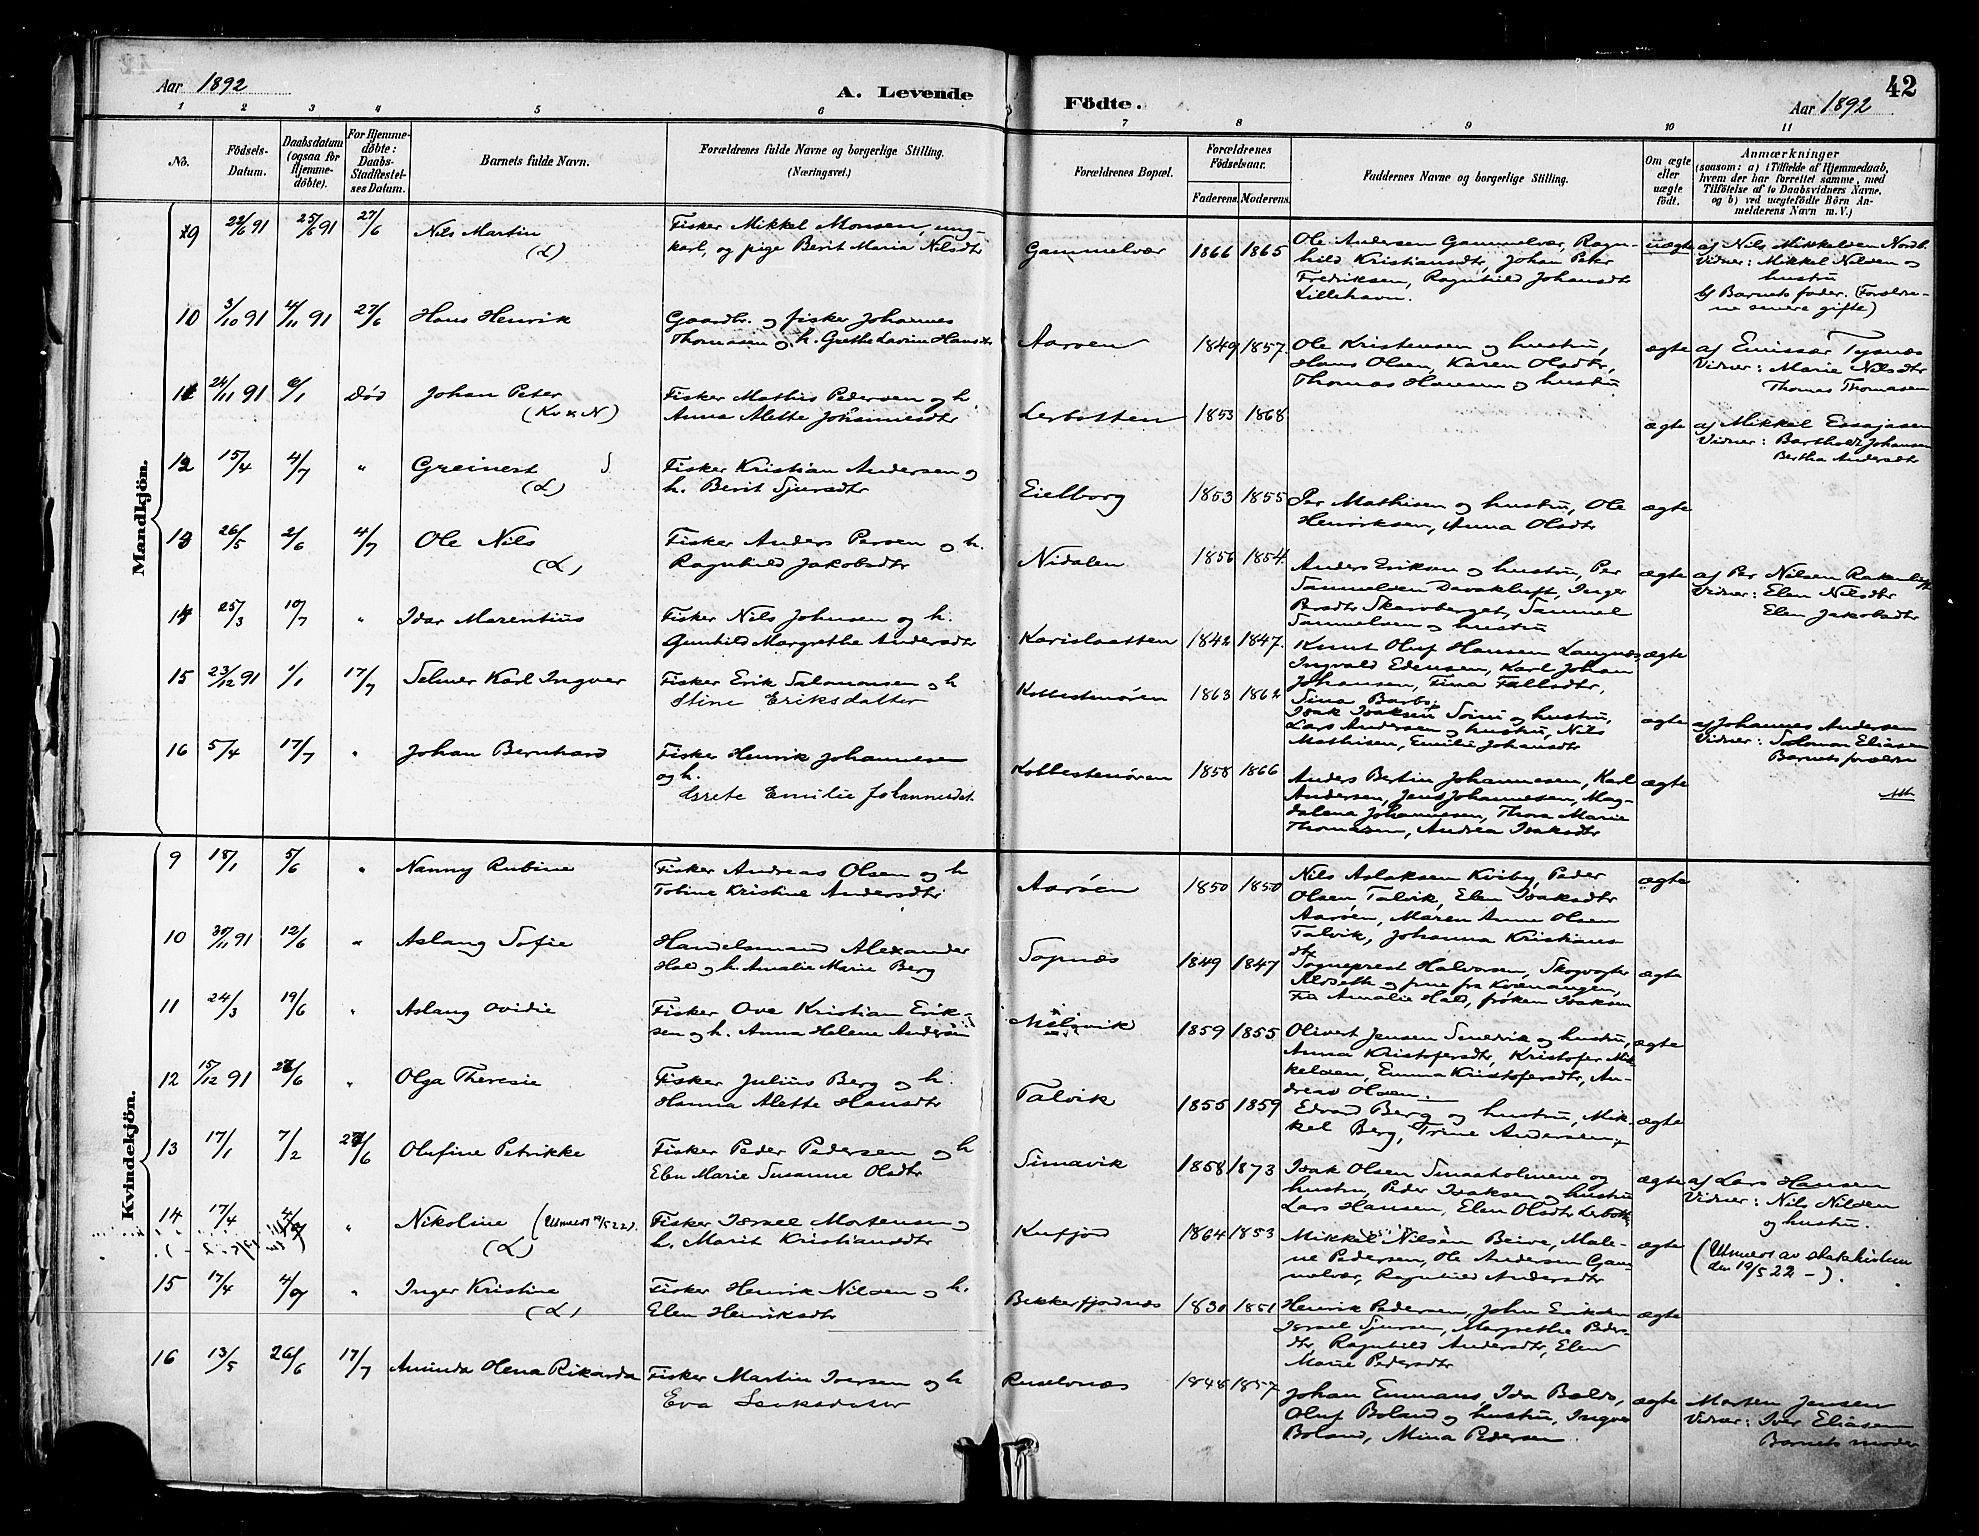 42
Aar 1892
A. Levende
Födte.
Aar 1892
1 2 3 4 5 6 7 8 9 10 11
No.
Födsels-
Datum.
Daabsdatum
(ogsaa for
Hjemme-
döbte).
For Hjemme-
döbte:
Daabs-
Stadfestel-
ses Datum.
Barnets fulde Navn.
Forældrenes fulde Navne og borgerlige Stilling.
(Næringsvei.)
Forældrenes Bopæl.
Forældrenes
Födselsaar.
Faderens. Moderens.
Faddernes Navne og borgerlige Stilling.
Om ægte
eller
uægte
født.
Anmærkninger
(saasom: a) i Tilfælde af Hjemmedaab,
hvem der har forrettet samme, med
Tilföielse af to Daabsvidners Navne,
og b) ved uægtefödte Börn An-
melderens Navn m. V.)
Mandkjön.
9 22/6 91 25/6 91 27/6 Nils Martin
(L)
Fisker Mikkel Monsen, ung-
karl, og pige Berit Maria Nilsdtr
Gammelvær 1866 1865
Ole Andersen Gammelvær, Ragn-
hild Kristiansdtr, Johan Peter
Fredriksen, Ragnhild Johansdtr
Lillehavn.
uægte
af Nils Mikkelsen Nordb.
Vidner: Mikkel Nilsen og
hustru
b) Barnets fader. (Forældre-
ne senere gifte)
10 3/10 91 4/11 91 27/6 Hans Henrik
Gaardbr. og fisker Johannes
Thomasen og h. Grethe Lavine Hansdtr
Aaröen 1849 1857.
Ole Kristensen og hustru,
Hans Olsen, Karen Olsdtr,
Thomas Hansen og hustru
ægte
af Emissær Tysnæs
Vidner: Marie Nilsdtr
Thomas Thomasen
11 24/11 91 6/1 Död Johan Peter
(Kv & N)
Fisker Mathis Pedersen og h.
Anna Alette Johannesdtr
Lerbotten 1853 1868
ægte
af Mikkel Essajasen
Vidner: Barthold Johansen
Bertha Andersdtr
12 15/4 4/7 " Greinert
(L)
Fisker Kristian Andersen og
h. Berit Sjursdtr
Eielborg 1853 1855
Per Mathisen og hustru, Ole
Henriksen, Anna Olsdtr
ægte
13 26/5 2/6 4/7 Ole Nils
(L)
Fisker Anders Persen og h.
Ragnhild Jakobsdtr
Nidalen 1856 1854.
Anders Eriksen og hustru, Per
Samuelsen Davakluft, Inger
Persdtr Skarvberget, Samuel
Samuelsen og hustru
ægte
af Per Nilsen
Vidner: Elen Nilsdtr
Elen Jakobsdtr
14 25/3 10/7 " Idar Marentius
Fisker Nils Johnsen og h.
Gunhild Margrethe Andersdtr
Karislaatten 1842 1847.
Knut Oluf Hansen Langnæs,
Ingvald Edensen, Karl Johan
Johansen, Tina Fallsdtr,
Sina Barbo.
ægte
15 23/12 91 1/1 17/7 Selmer Karl Ingver
Fisker Erik Salamonsen og h
Stine Eriksdatter
Kobbestenören 1863 1862
Isak Isaksen Sörnes og hustru,
Lars Andersen og hustru, Nils
Mathisen, Emilie Johansdtr
ægte
af Johannes Andersen
Vidner: Salomon Eliasen
Barnets forældre
16 5/4 17/7 " Johan Bernhard
Fisker Henrik Johannesen
og h.
Grete Emilie Johannesdt.
Kobbestenören 1858 1866
Anders Bertin Johannesen, Karl
Andersen, Jens Johannesen, Mag-
dalena Johannesen, Thora Marie
Thomasen, Andrea Isaksdtr
ægte
Kvindekjön.
9 18/1 5/6 " Nanny Rubine
Fisker Andreas Olsen og h
Tobine Kristine Andersdtr
Aaröen 1850 1850
Nils Aslaksen Kviby, Peder
Olsen Talvik, Elen Isaksdtr
Aaröen, Maren Anne Olsen
Talvik, Johanna Kristians
dtr
ægte
10 30/11 91 12/6 " Aslaug Sofie
Handelsmand Alexander
Hald og h. Amalie Marie Berg
Sopnæs 1849 1847
Sogneprest Halvorsen, Skogvogter
Klosette og frue fra Kvænangen,
Fru Amalie Hald, fröken Isaksen
ægte
11 24/3 19/6 " Aslaug Ovidie
Fisker Ove Kristian Erik-
sen og h. Anna Helene Andersen
Melsvik 1859 1855
Olivert Jensen Smedvik og hustru,
Anna Kristofersdtr, Kristofer Mik-
kelsen, Emma Kristofersdtr, An-
dreas Olsen.
ægte
12 15/12 91 26/6 " Olga Theresie
Fisker Julius Berg og h.
Hanna Alette Hansdtr
Talvik 1855 1859
Edvard Berg og hustru, Mik-
kel Berg, Trine Andersen,
ægte
13 17/1 7/2 26/6 Olufine Petrikke
Fisker Peder Pedersen og h
Elen Marie Susanne Olsdtr
Simavik 1858 1873
Isak Olsen Smaaholmene og
hustru, Peder Isaksen og hustru
Lars Hansen, Elen Olsdtr Lerbott.
ægte
af Lars Hansen
Vidner: Nils Nilsen
og hustru.
14 17/4 4/9 " Nikoline (Utmeldt 19/5 22).
(L)
Fisker Israel Mortensen og
h. Marit Kristiansdtr
Kufjord 1864 1853
Mikkel Nilsen Beive, Male-
ne Pedersen, Ole Andersen Gam-
melvær, Ragnhild Andersdtr
ægte
(Utmeldt av statskirken
den 19/5 22 -).
15 17/4 4/9 " Inger Kristine
(L)
Fisker Henrik Nilsen og h.
Elen Henriksdtr
Bekkerfjordnæs 1830 1851
Henrik Pedersen, John Eriksen
Israel Sjursen, Margrethe Peder-
dtr, Ragnhild Andersdtr, Elen
Marie Pedersdtr
ægte
16 13/5 26/6 17/7 Aminda Olena Rikarda
Fisker Martin Iversen og h
Eva
Ruselvnæs 1848 1857
Johan Emmaus, Ida Boldo,
Oluf Boland og hustru, Ingver
Boland, Mina Pedersen
ægte
Morten Jensen
Vidner: Iver Eliasen
Barnets moder